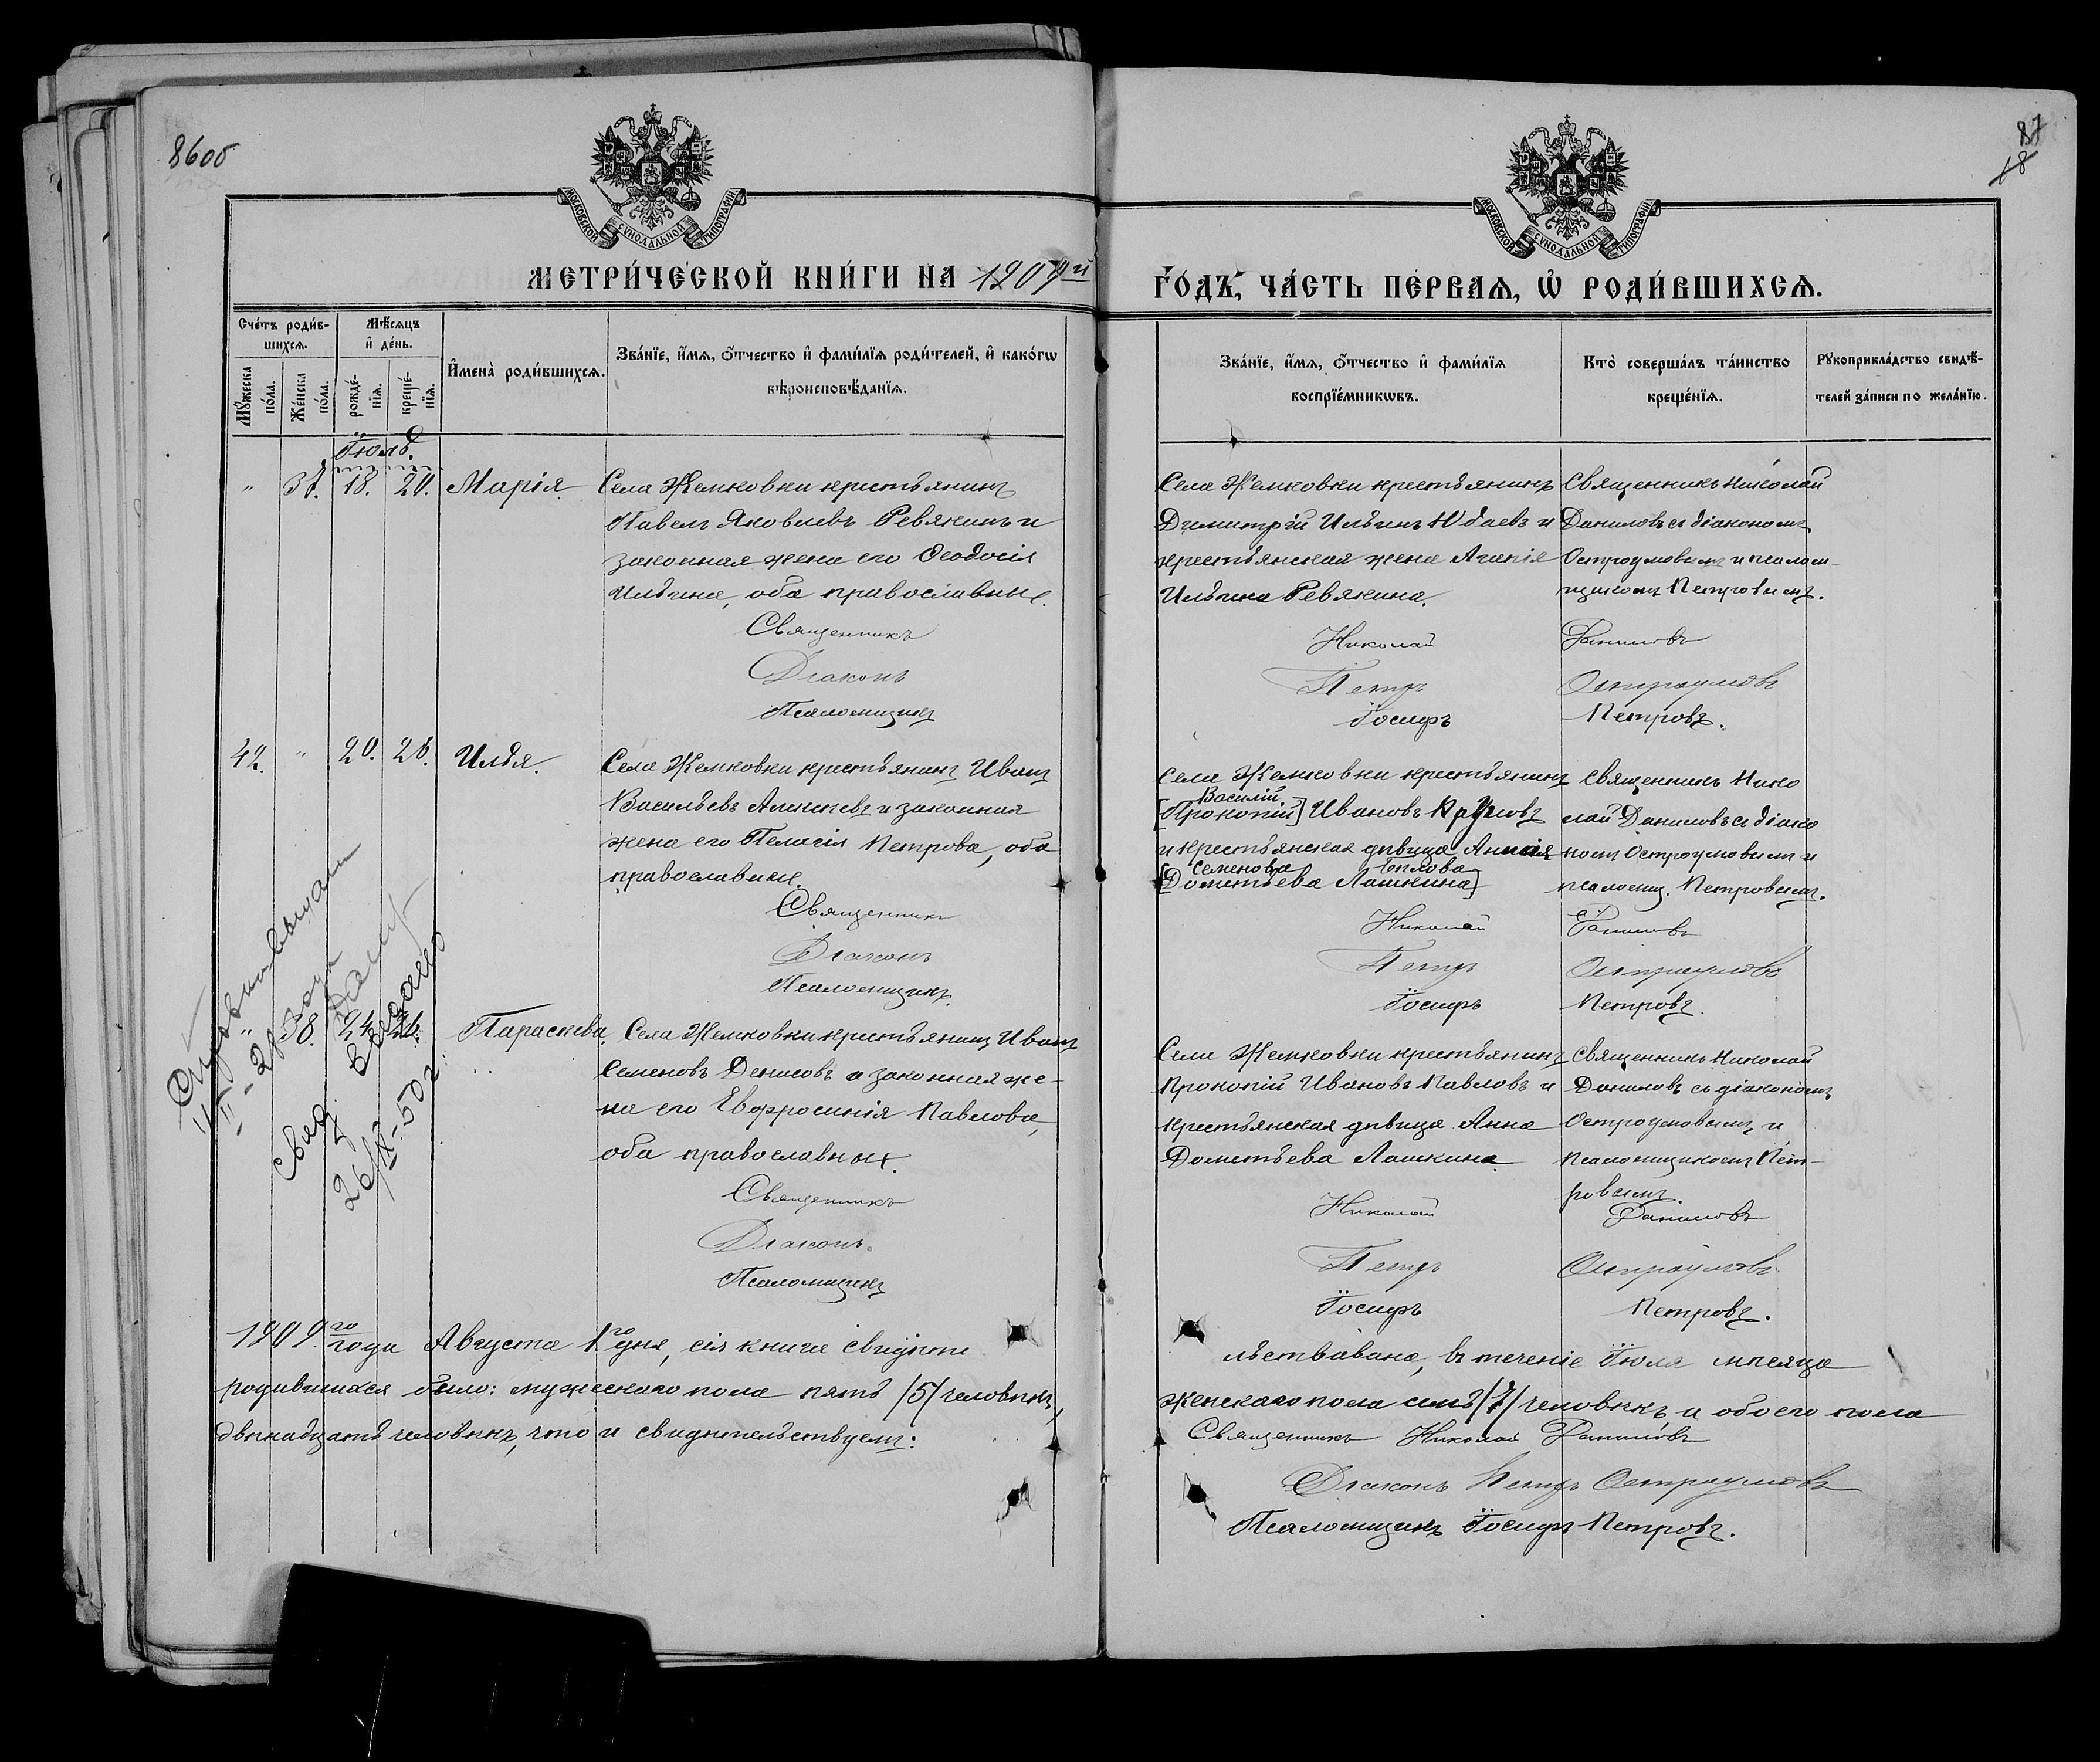 860б
87
18
МОСКОВСКОЙ СѴНОДАЛЬНОЙ ТИПОГРАФІИ
МОСКОВСКОЙ СѴНОДАЛЬНОЙ ТИПОГРАФІИ
МЕТРИ́ЧЕСКОЙ КНИ́ГИ НА 1909й
ГО́ДЪ, ЧА́СТЬ ПЕ́РВАѦ, Ѡ҆ РОДИ́ВШИХСѦ.
Сче́тъ роди́в-
шихсѧ.
Мꙋ́жеска по́ла.
Же́нска по́ла.
Мѣ́сѧцъ
и҆ де́нь.
рожде́-
нїѧ.
креще́-
нїѧ.
И҆мена̀ роди́вшихсѧ.
Зва́нїе, и҆́мѧ, ѻ҆́тчество и҆ фами́лїѧ роди́телей, и҆ како́гѡ
вѣроисповѣ́данїѧ.
Зва́нїе, и҆́мѧ, ѻ҆́тчество и҆ фами́лїѧ
воспрїе́мникѡвъ.
Кто̀ соверша́лъ та́инство
креще́нїѧ.
Рꙋкоприкла́дство свидѣ́-
телей за́писи по жела́нїю.
Іюль.
" 37. 18. 20. Марія.
Села Жемковки крестьянинъ
Павелъ Яковлевъ Ревякинъ и
законная жена его Ѳеодосія
Ильина, оба православные.
Священникъ
Діаконъ
Псаломщикъ
Села Жемковки крестьянинъ
Димитрій Ильинъ Юдаевъ и
крестьянская жена Агапія
Ильина Ревякина.
Николай
Петръ
Іосифъ
Священникъ Николай
Даниловъ съ діакономъ
Остроумовымъ и псалом-
щикомъ Петровымъ.
Даниловъ
Остроумовъ
Петровъ.
42. " 20. 26. Илья.
Села Жемковки крестьянинъ Иванъ
Васильевъ Алексѣевъ и законная
жена его Пелагія Петрова, оба
православные.
Священникъ
Діаконъ
Псаломщикъ.
Села Жемковки крестьянинъ
Василій
[Прокопій] Ивановъ Кругловъ
и крестьянская дѣвица Анисія
Семенова
[Дометьева Лашкина]
Николай
Петръ
Іосифъ
Священникъ Нико
лай Даниловъ съ діако
номъ Остроумовымъ и
псаломщ. Петровымъ.
Даниловъ
Остроумовъ
Петровъ.
" 38. 24. 26. Параскева.
Села Жемковки крестьянинъ Иванъ
Семеновъ Денисовъ и законная же-
на его Евфросинія Павлова,
оба православные.
Священникъ
Діаконъ.
Псаломщикъ
Села Жемковки крестьянинъ
Прокопій Ивановъ Павловъ и
крестьянская дѣвица Анна
Дометьева Лашкина
Николай
Петръ
Іосифъ
Священникъ Николай
Даниловъ съ діакономъ
Остроумовымъ и
псаломщикомъ Пет-
ровымъ.
Даниловъ
Остроумовъ
Петровъ.
26/IX-50 г.
1909го года Августа 1го дня, сія книга свидѣте
льствована, въ теченіе Іюля мѣсяца
родившихся было: мужескаго пола пять /5/ человѣкъ,
женскаго пола семь /7/ человѣкъ, и обоего пола
двѣнадцать человѣкъ, что и свидѣтельствуемъ:
Священникъ Николай Даниловъ
Діаконъ Петръ Остроумовъ
Псаломщикъ Іосифъ Петровъ.